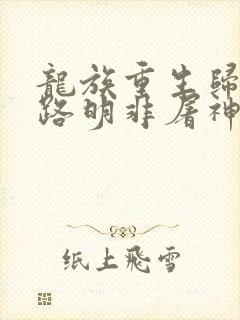 龍族重生歸
路明非屠神
纸上飛雪